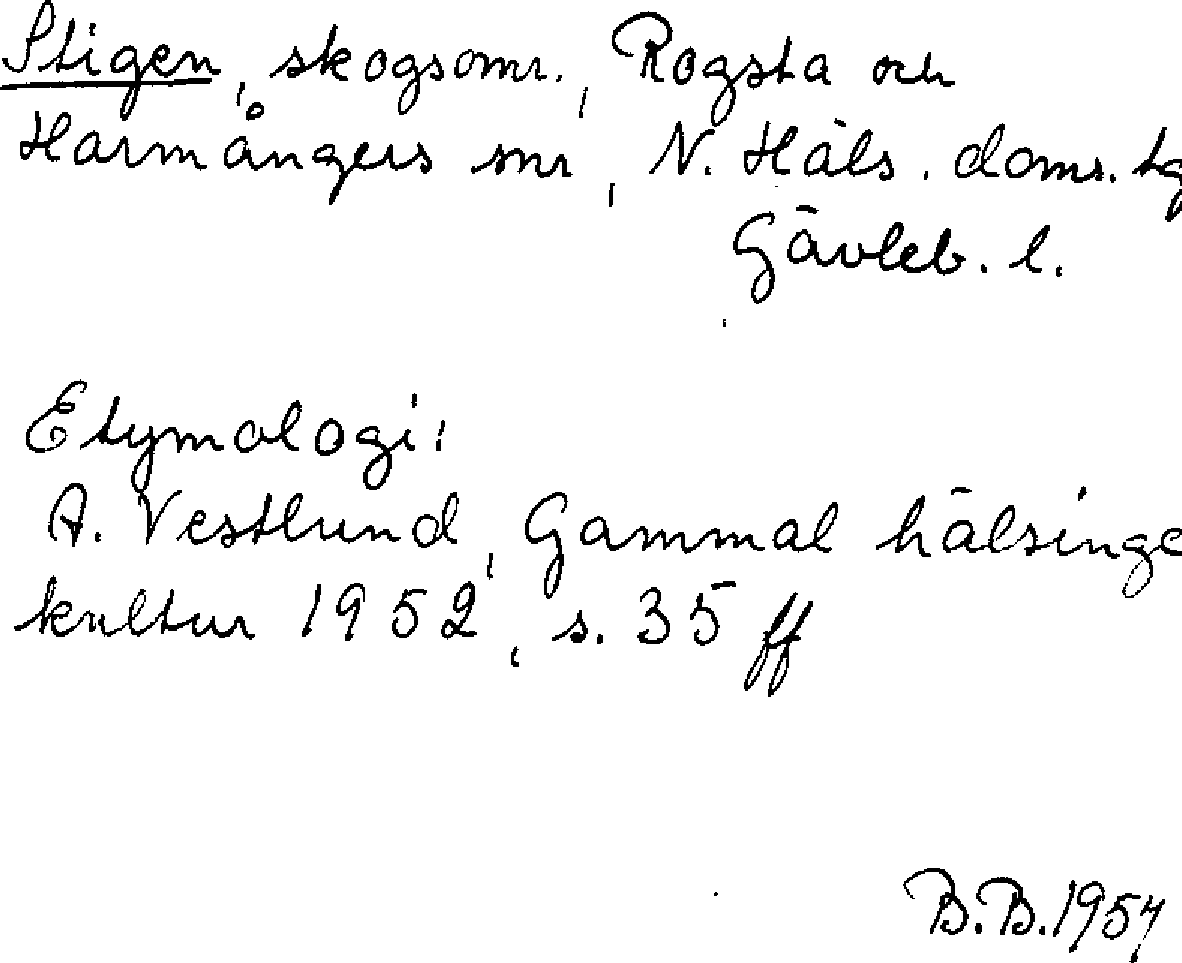 Stigen, skogsomr., Rogsta och
Harmångers snr, N. Häls. doms. tg
Gävleb. l.
Etymologi:
A. Vestlund, Gammal hälsinge
kultur 1952, s. 35 ff
B.B. 1954